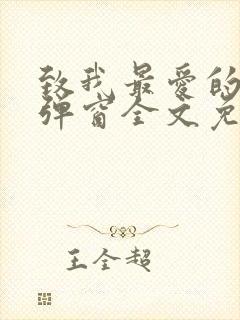 致我最爱的
弹窗全文免
王全超